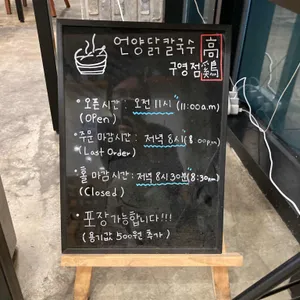 언양닭칼국수
구영점
高
鷄
• 오픈시간 : 오전 11시 (11:00am)
(Open)
• 주문 마감시간 : 저녁 8시 (8:00pm)
(Last Order)
• 홀 마감시간 : 저녁 8시 30분 (8:30pm)
(Closed)
• 포장가능합니다!!!
(용기값 500원 추가)